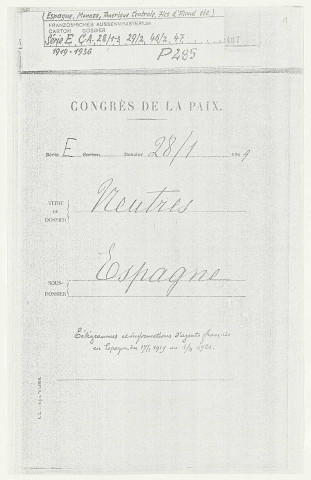 (Espagne, Monaco, Amérique Centrale, Iles d'Aland etc)
FRANZÖSISCHES AUSSENMINISTERIUM
CARTON DOSSIER
Série E, C.A, 28/1-3, 29/2, 46/2, 47
1919-1936
P 285
1
CONGRÈS DE LA PAIX.
Série E Carton Dossier 28/1 9
TITRE DU DOSSIER Neutres
SOUS-DOSSIER Espagne
Télégrammes et informations d'agents français
en Espagne du 17/1 1919 au